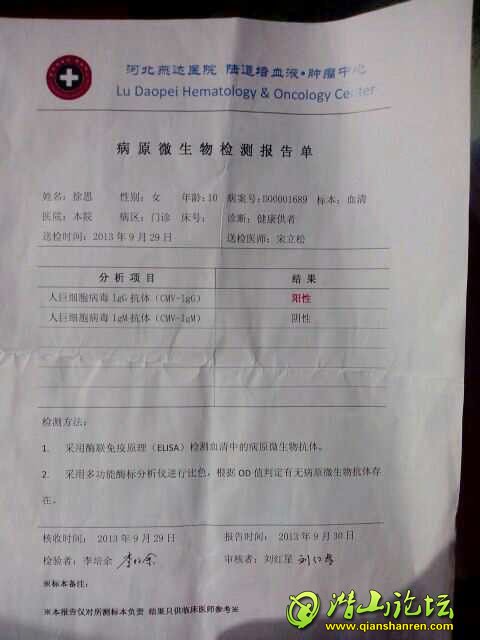 河北燕达医院 陆道培血液·肿瘤中心
Lu Daopei Hematology & Oncology Center
病原微生物检测报告单
姓名：徐恩 性别：女 年龄：10 病案号：D00001689 标本：血清
医院：本院 病区：门诊 床号： 诊断：健康供者
送检时间：2013年9月29日 送检医师：宋立松
分析项目 结果
人巨细胞病毒 IgG 抗体（CMV-IgG） 阳性
人巨细胞病毒 IgM 抗体（CMV-IgM） 阴性
检测方法：
1. 采用酶联免疫原理（ELISA）检测血清中的病原微生物抗体。
2. 采用多功能酶标分析仪进行比色，根据 OD 值判定有无病原微生物抗体存
在。
核收时间：2013年9月29日 报告时间：2013年9月30日
检验者：李培余 李培余 审核者：刘红星 刘红星
※标本备注：
※本报告仅对所测标本负责 结果只供临床医师参考※
潜山论坛
www.qianshanren.com